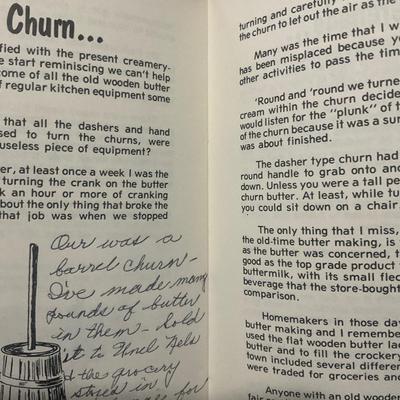 Churn...
fied with the present creamery-
e start reminiscing we can't help
come of all the old wooden butter
f regular kitchen equipment some
that all the dashers and hand
sed to turn the churns, were
useless piece of equipment?
er, at least once a week I was the
turning the crank on the butter
k an hour or more of cranking
about the only thing that broke the
that job was when we stopped
Our was a
barrel churn -
I've made many
pounds of butter
in them - sold
it to
& the grocery
stores in
for
turning and carefully
the churn to let out the air as the
Many was the time that I w
has been misplaced because yo
other activities to pass the tim
'Round and 'round we turne
cream within the churn decide
would listen for the "plunk" of t
of the churn because it was a sur
was about finished.
The dasher type churn had
round handle to grab onto and
down. Unless you were a tall pe
churn butter. At least, while tu
you could sit down on a chair.
The only thing that I miss,
the old-time butter making, is
as the butter was concerned, t
good as the top grade product
buttermilk, with its small flec
beverage that the store-bought
comparison.
Homemakers in those day
butter making and I remember
used the flat wooden butter lad
butter and to fill the crockery
town included several differe
were traded for groceries and
Anyone with an old wood